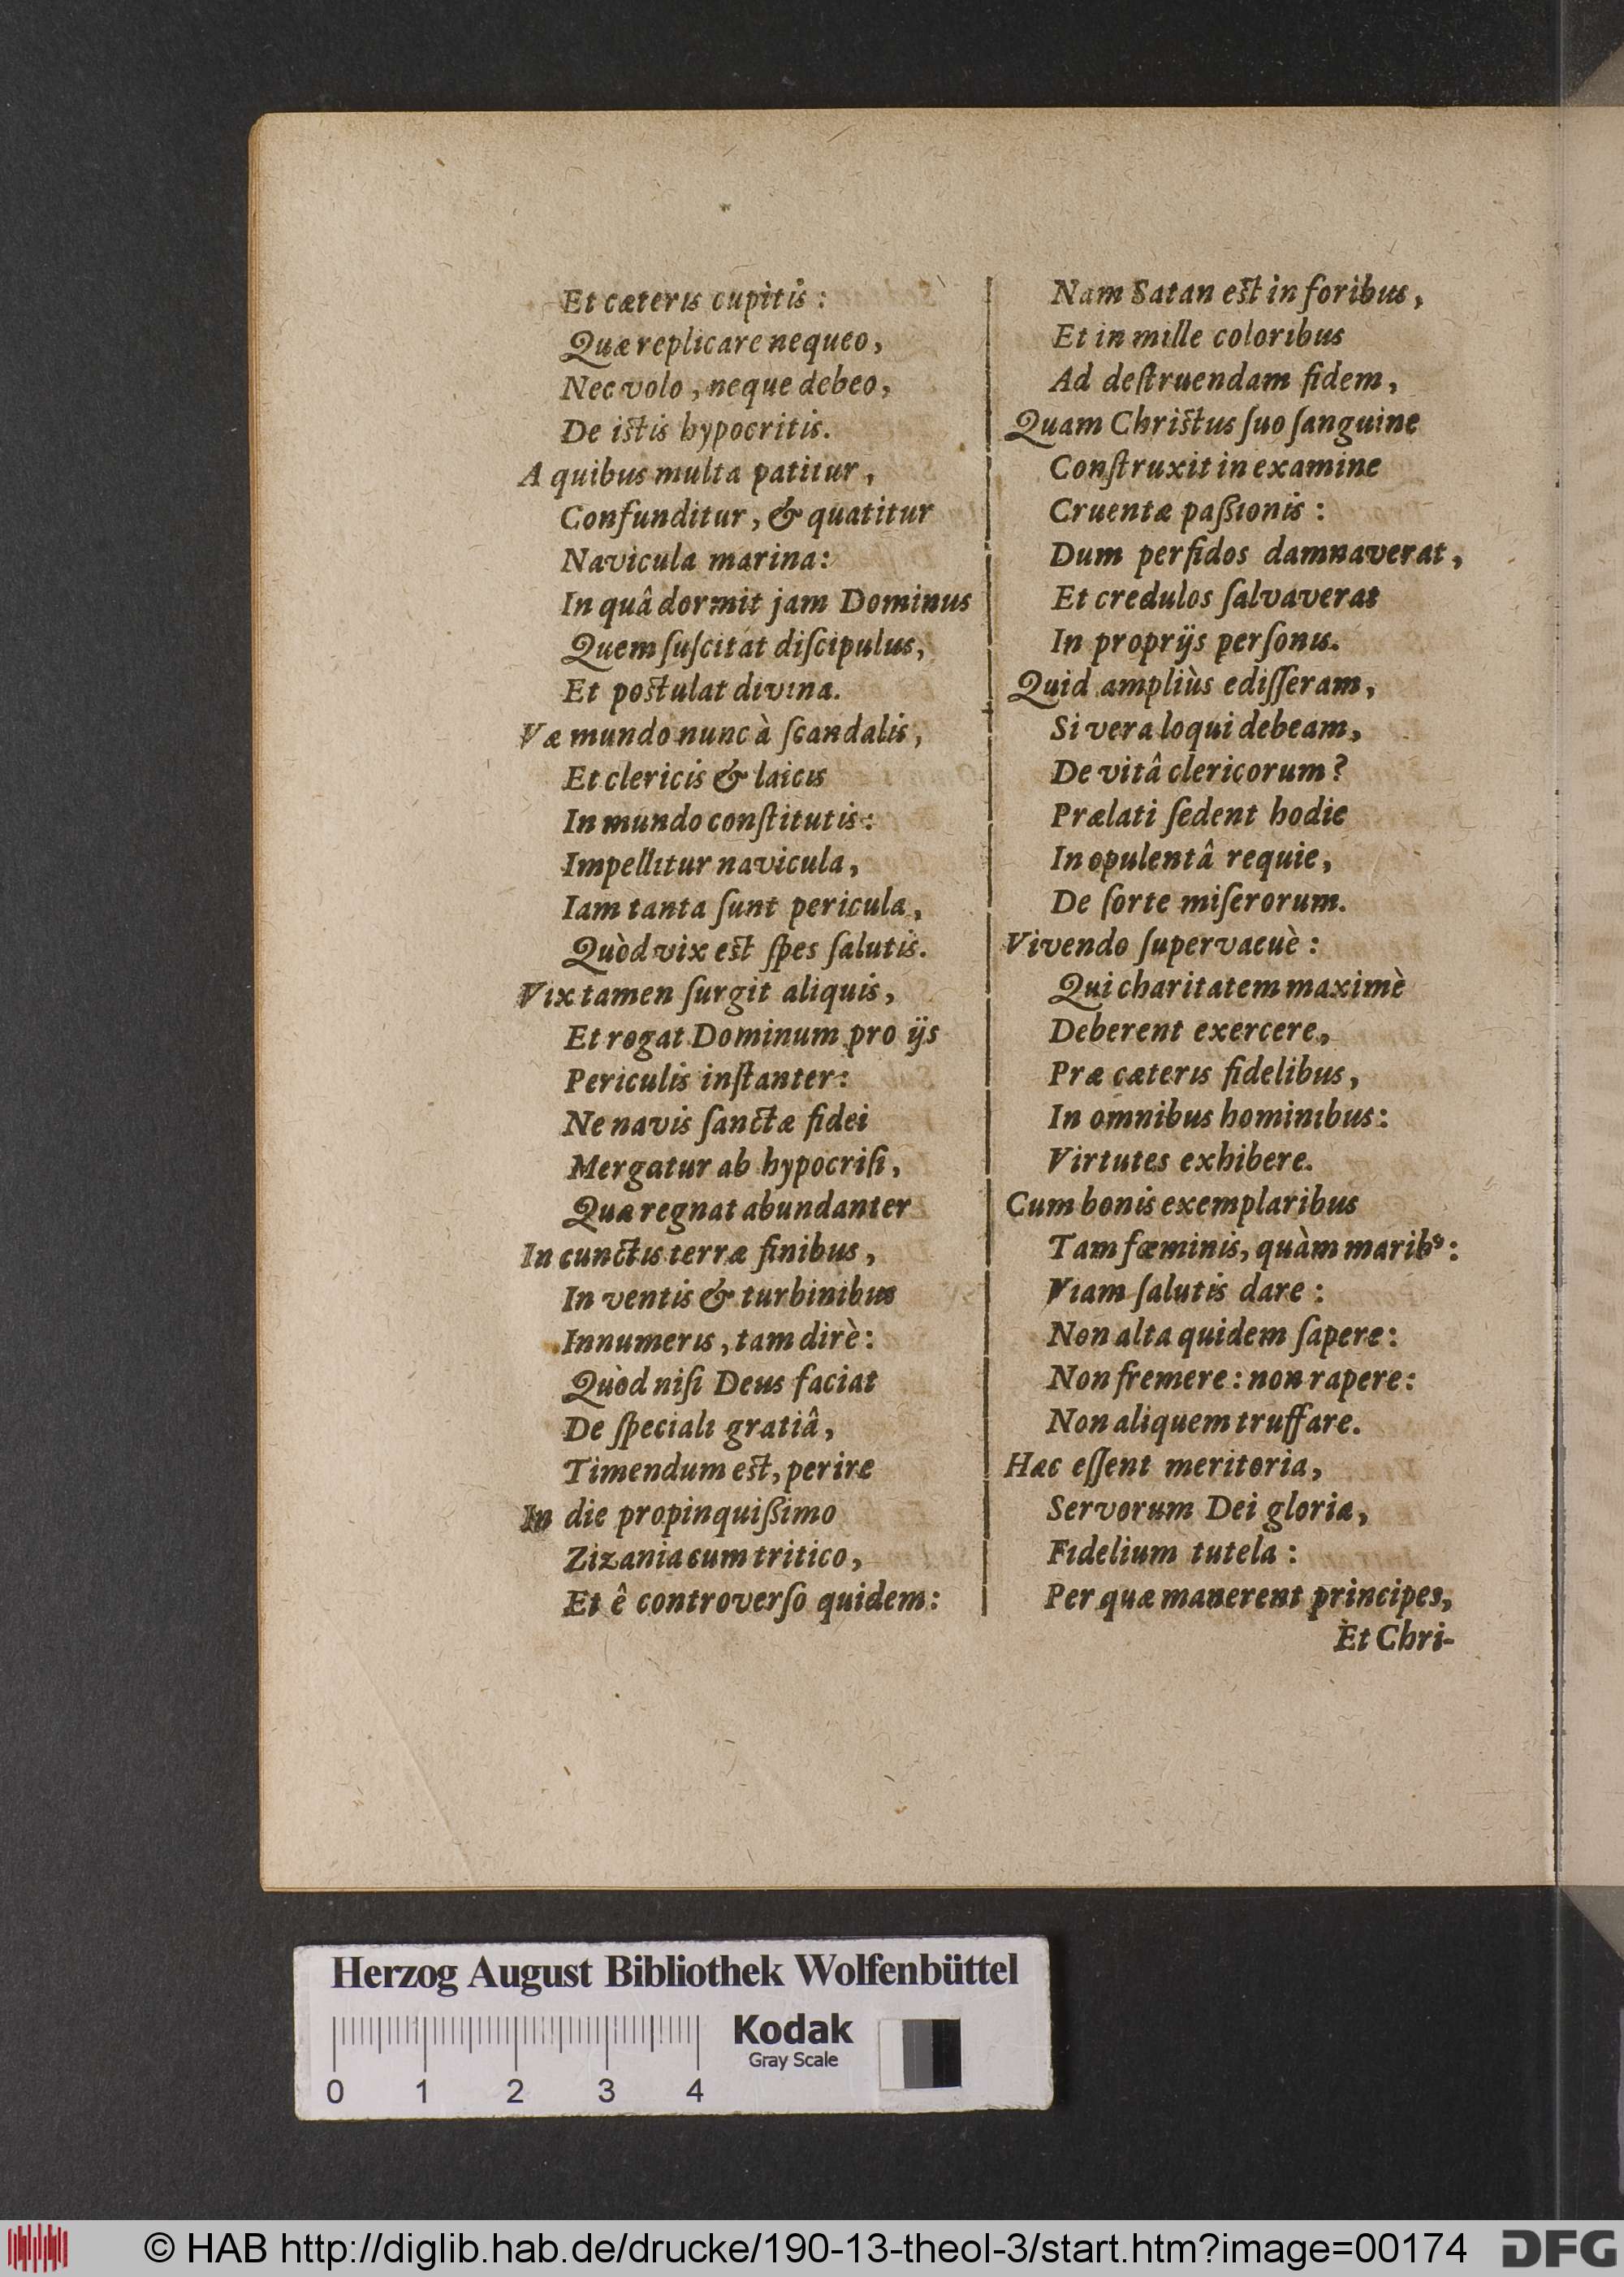 Et cæteris cupitis:
Quæ replicare nequeo,
Nec volo, neque debeo,
De istis hypocritis.
A quibus multa patitur,
Confunditur, & quatitur
Navicula marina:
In quâ dormit jam Dominus
Quem ſuſcitat diſcipulus,
Et postulat divina.
Væ mundo nunc à ſcandalis,
Et clericis & laicis
In mundo conſtitutis:
Impellitur navicula,
Iam tanta ſunt pericula,
Quòd vix est ſpes ſalutis.
Vix tamen ſurgit aliquis,
Et rogat Dominum pro ijs
Periculis inſtanter:
Ne navis ſanctæ fidei
Mergatur ab hypocriſi,
Quæ regnat abundanter
In cunctis terræ finibus,
In ventis & turbinibus
Innumeris, tam dirè:
Quòd niſi Deus faciat
De ſpeciali gratiâ,
Timendum est, perire
In die propinquißimo
Zizania cum tritico,
Et ê controverſo quidem:
Nam Satan est in foribus,
Et in mille coloribus
Ad deſtruendam fidem,
Quam Christus ſuo ſanguine
Conſtruxit in examine
Cruentæ paßionis:
Dum perfidos damnaverat,
Et credulos ſalvaverat
In proprijs perſonis.
Quid ampliùs ediſſeram,
Si vera loqui debeam,
De vitâ clericorum?
Prælati ſedent hodie
In opulentâ requie,
De ſorte miſerorum.
Vivendo ſupervacuè:
Qui charitatem maximè
Deberent exercere,
Præ cæteris fidelibus,
In omnibus hominibus:
Virtutes exhibere.
Cum bonis exemplaribus
Tam fœminis, quàm maribꝰ:
Viam ſalutis dare:
Non alta quidem ſapere:
Non fremere: non rapere:
Non aliquem truffare.
Hæc eſſent meritoria,
Servorum Dei gloria,
Fidelium tutela:
Per quæ manerent principes,
Et Chri-
Herzog August Bibliothek Wolfenbüttel
Kodak
Gray Scale
0 1 2 3 4
© HAB http://diglib.hab.de/drucke/190-13-theol-3/start.htm?image=00174
DFG